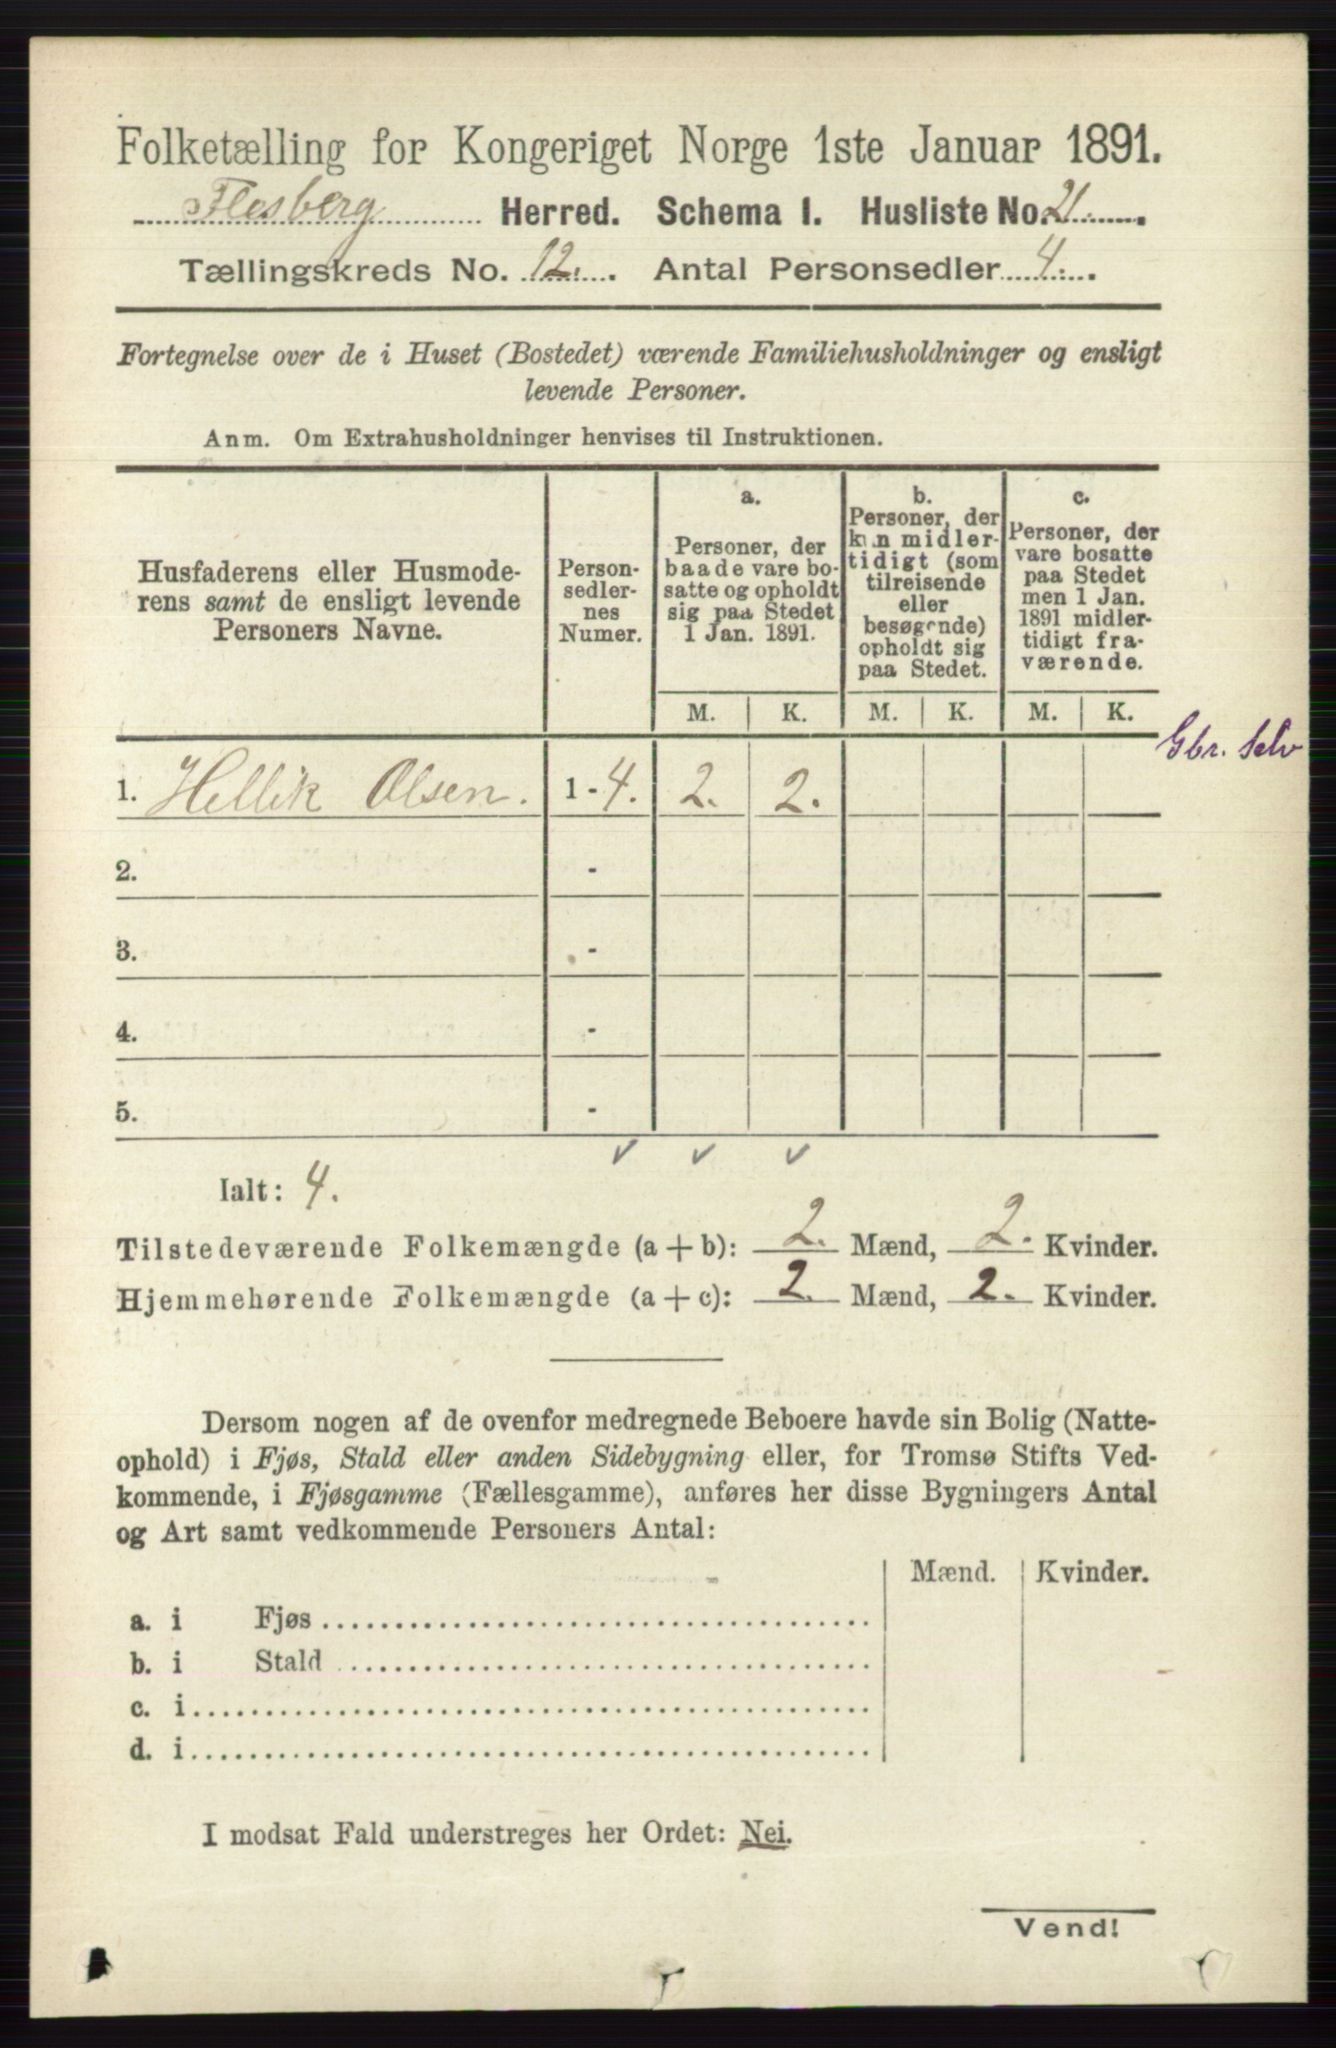 Folketælling for Kongeriget Norge 1ste Januar 1891.
Flesberg Herred. Schema I. Husliste No. 21.
Tællingskreds No. 12. Antal Personsedler 4.
Fortegnelse over de i Huset (Bostedet) værende Familiehusholdninger og ensligt
levende Personer.
Anm. Om Extrahusholdninger henvises til Instruktionen.
Husfaderens eller Husmode-
rens samt de ensligt levende
Personers Navne.
Person-
sedler-
nes
Numer.
a.
Personer, der
baade vare bo-
satte og opholdt
sig paa Stedet
1 Jan. 1891.
b.
Personer, der
kun midler-
tidigt (som
tilreisende
eller
besøgende)
opholdt sig
paa Stedet.
c.
Personer, der
vare bosatte
paa Stedet
men 1 Jan.
1891 midler-
tidigt fra-
værende.
M. K. M. K. M. K.
Gbr. Selv
1. Hellik Olsen. 1 - 4. 2. 2.
2. -
3. -
4. -
5. -
Ialt: 4.
Tilstedeværende Folkemængde (a + b): 2. Mænd, 2. Kvinder.
Hjemmehørende Folkemængde (a + c): 2. Mænd, 2. Kvinder.
Dersom nogen af de ovenfor medregnede Beboere havde sin Bolig (Natte-
ophold) i Fjøs, Stald eller anden Sidebygning eller, for Tromsø Stifts Ved-
kommende, i Fjøsgamme (Fællesgamme), anføres her disse Bygningers Antal
og Art samt vedkommende Personers Antal:
Mænd. Kvinder.
a. i Fjøs
b. i Stald
c. i
d. i
I modsat Fald understreges her Ordet: Nei.
Vend!